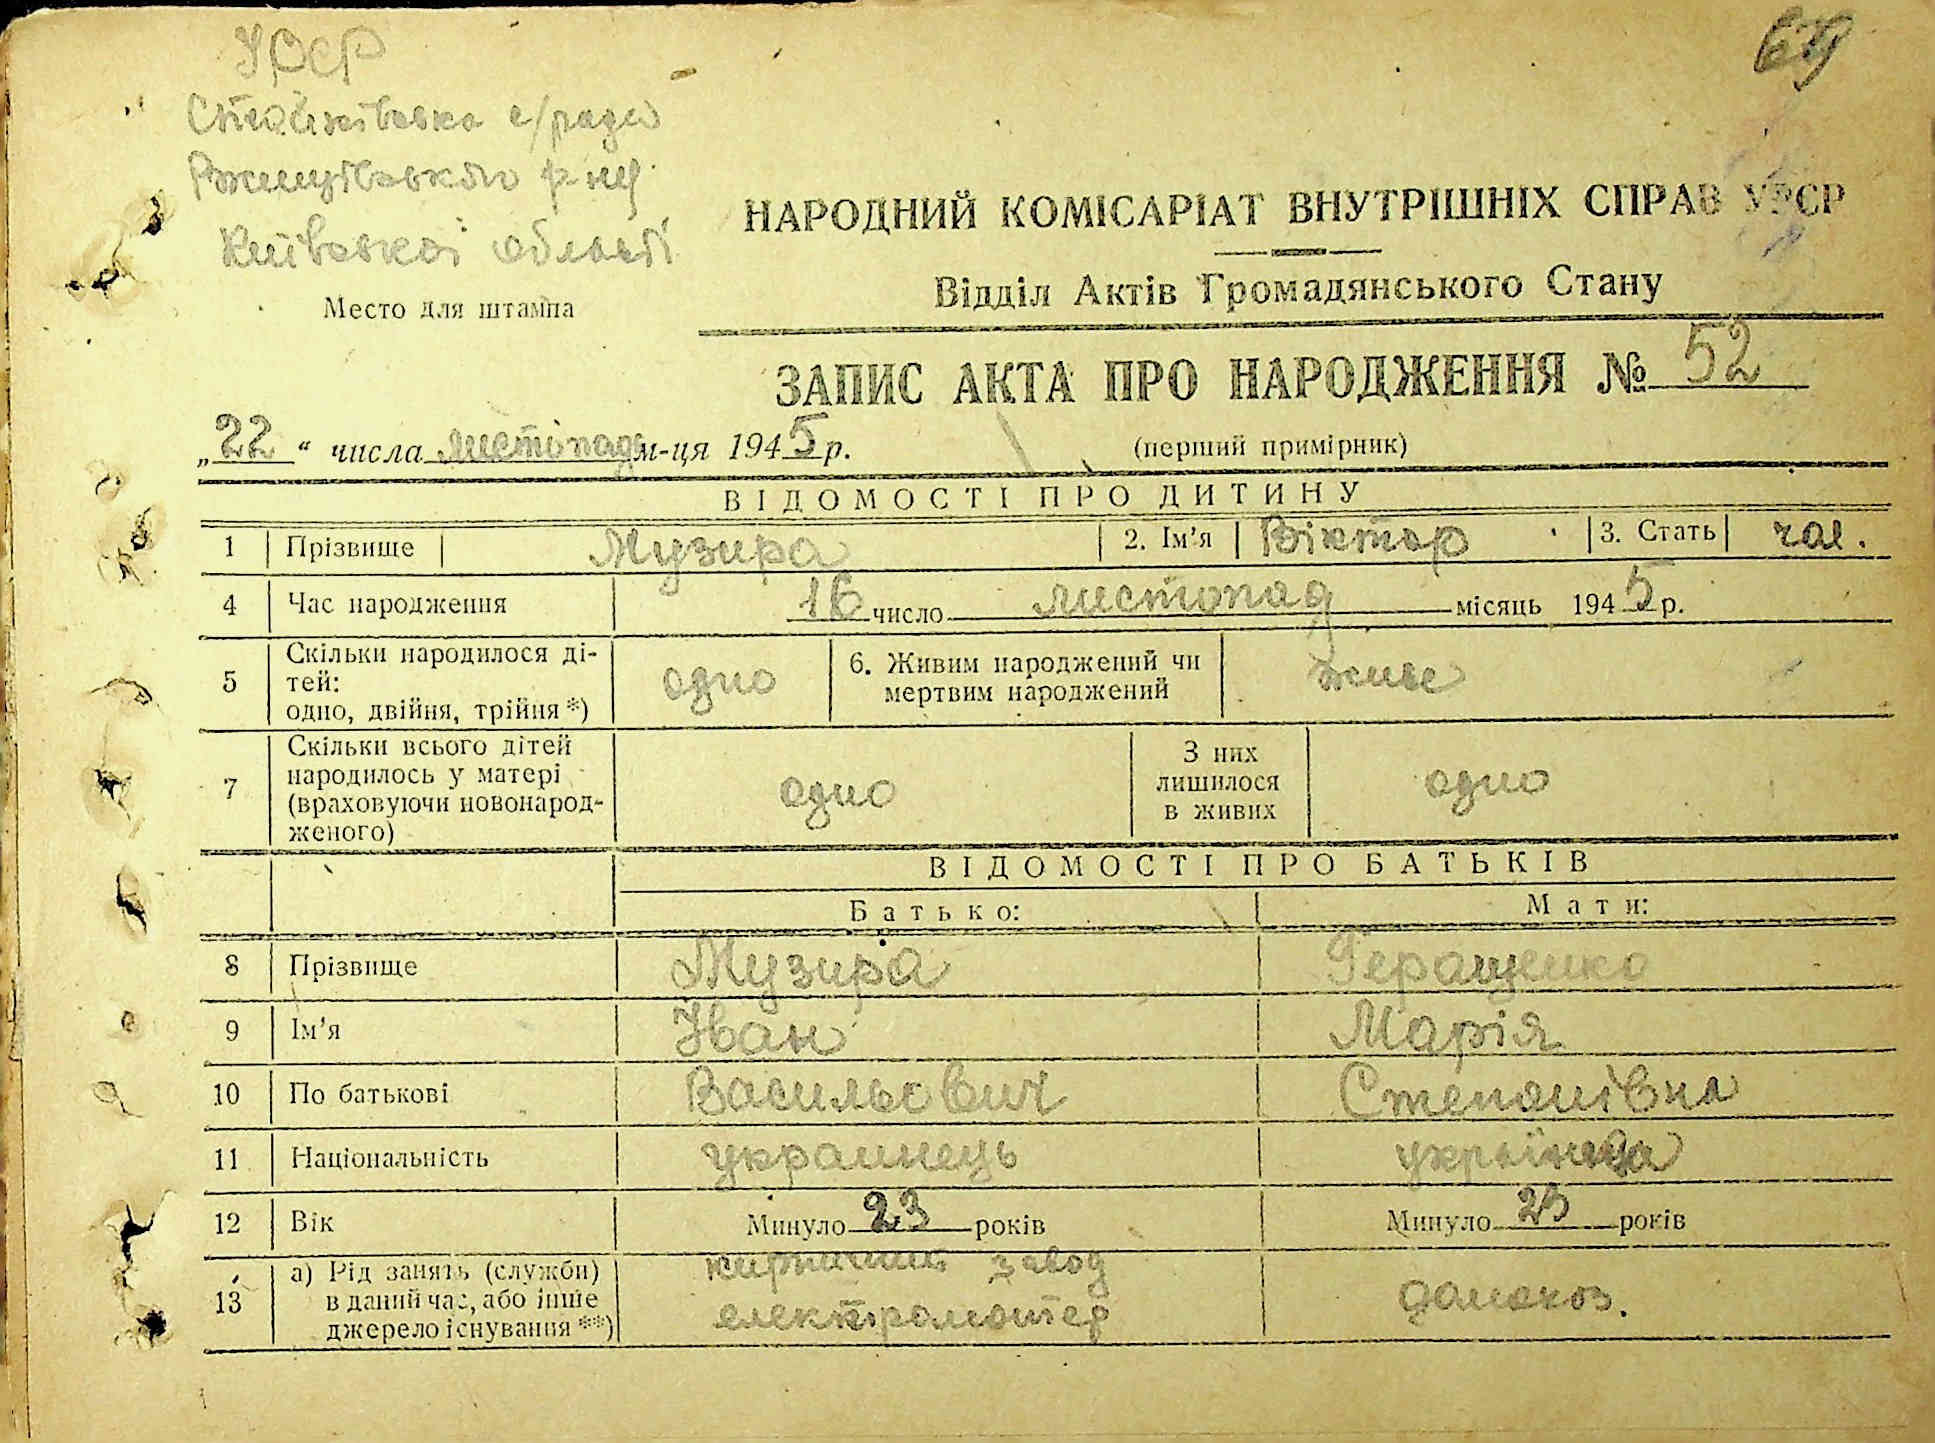 УРСР
69
с/ради
Ржищівського р-ну
Київської області
НАРОДНИЙ КОМІСАРІАТ ВНУТРІШНІХ СПРАВ УРСР
Відділ Актів Громадянського Стану
Место для штампа
ЗАПИС АКТА ПРО НАРОДЖЕННЯ № 52
„22“ числа листопада м-ця 1945 р. (перший примірник)
ВІДОМОСТІ ПРО ДИТИНУ
1 Прізвище Музира 2. Ім'я Віктор 3. Стать чол.
4 Час народження 16 число листопад місяць 1945 р.
5 Скільки народилося ді-
тей:
одно, двійня, трійня*) одно 6. Живим народжений чи
мертвим народжений живе
7 Скільки всього дітей
народилось у матері
(враховуючи новонарод-
женого) одно З них
лишилося
в живих одно
ВІДОМОСТІ ПРО БАТЬКІВ
Батько: Мати:
8 Прізвище Музира Геращенко
9 Ім'я Іван Марія
10 По батькові Васильович Степанівна
11 Національність украинець українка
12 Вік Минуло 23 років Минуло 23 років
13 а) Рід занять (служби)
в даний час, або інше
джерело існування**) завод
електромонтер домохоз.